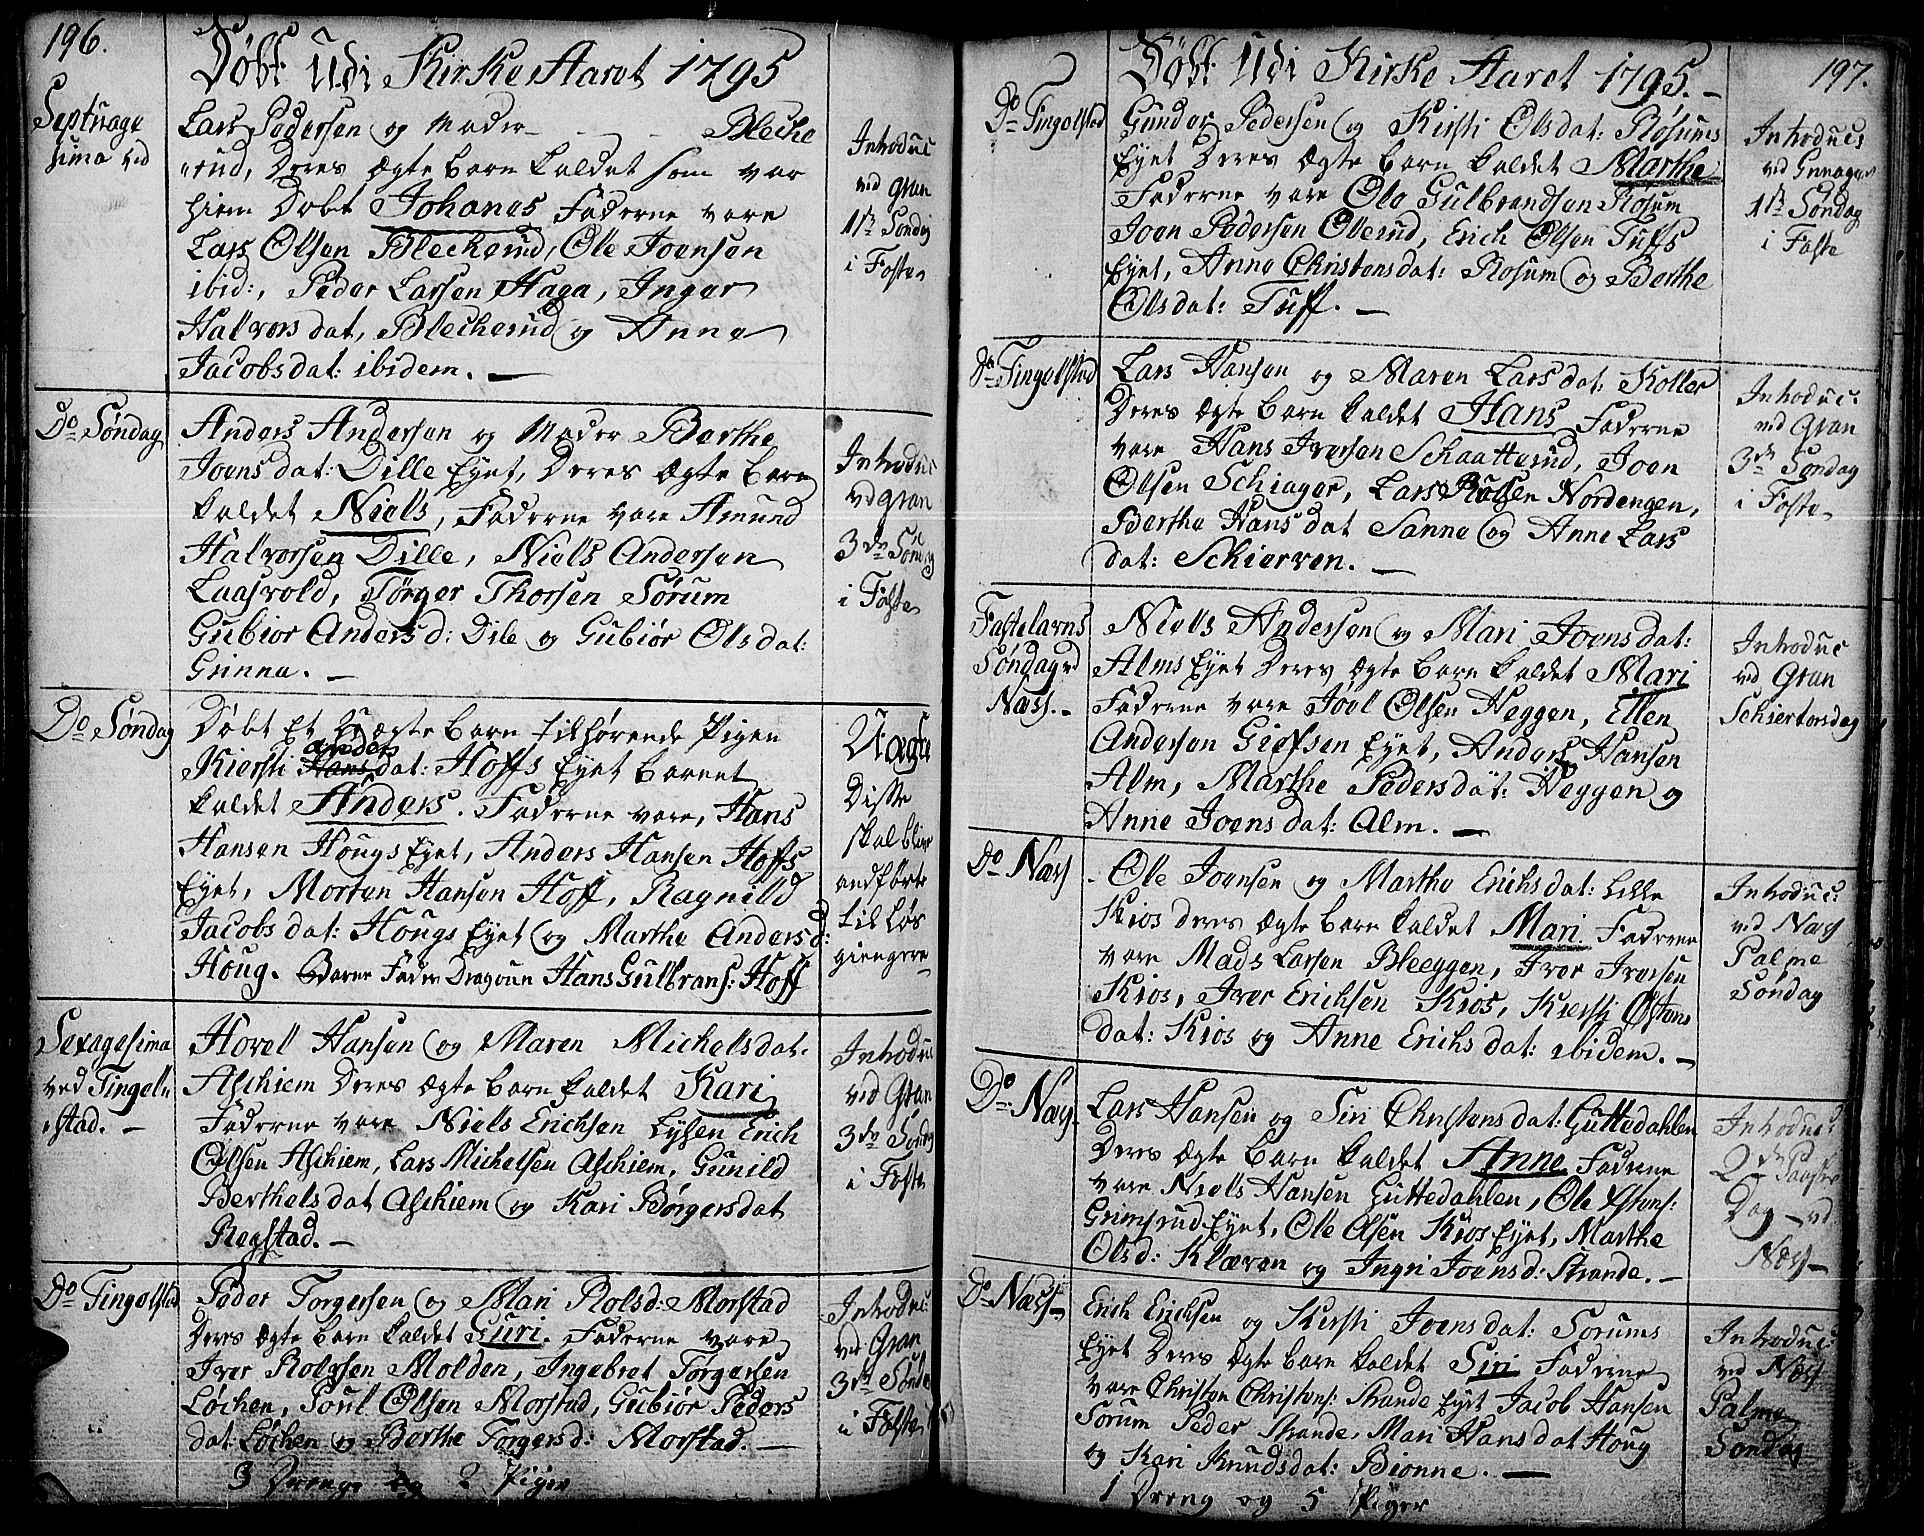 196.
Døbt Udi Kirke Aaret 1795
Septuage
sima ved
Lars Pedersen og Moder - - - Bleche
rud, Deres ægte barn kaldet som var
hiem Døbt Johanes Faderne vare
Lars Olsen Blecherud, Ole Joensen
ibid:, Peder Larsen Haga, Inger
Halvors dat, Blecherud og Anne
Jacobs dat: ibidem. —
Introduc
ved Gran
1ste Søndag
i Faste
Do Søndag
Anders Andersen og Moder Berthe
Joens dat: Dille Eyet, Deres ægte barn
kaldet Niels, Faderne vare Amund
Halvorsen Dille, Niels Andersen
Laasvold, Törger Thorsen Sørum
Gubior Anders d: Dile og Gubiør Ols dat:
Grinna. —
Introduc
ved Gran
3die Sønd
i Faste
Do Søndag
Døbt Et Uægte barn tilhørende Pigen
Kiersti anders dat: Hoffs Eyet barnet
kaldet Anders. Faderne vare, Hans
Hansen Hougs Eyet, Anders Hansen Hoffs
Eyet, Morten Hansen Hoff, Ragnild
Jacobs dat: Hougs Eyet og Marthe Anders d:
Houg. Barne Fader Dragoun Hans Gulbrans: Hoff
Uægte
Disse
skal blive
andførte
til løs
giengere
Sexagesima
ved Tingeln
stad. —
Hovel Hansen og Maren Michels dat:
Aschiem Deres ægte barn kaldet Kari
Faderne vare Niels Erichsen Lysen Erich
Olsen Aschiem, Lars Michelsen Aschiem, Gunild
Berthels dat Aschiem og Kari Börgers dat
Regstad. —
Introduc
ved Gran
3die Sønda
i Faste
Do Tingelstad
Peder Torgersen og Mari Rolsd: Morstad
Deres ægte barn kaldet Guri. Faderne vare
Iver Rolvsen Molden, Ingebret Törgersen
Løchen, Poul Olsen Morstad, Gubiør Peders
dat: Løchen og Berthe Torgers d: Morstad. —
3 Drenge og 2 Piger
Introduc:
ved Gran
3die Sønda
i Faste
197.
Døbt Udi Kirke Aaret 1795. —
Do Tingelstad
Gunder Pedersen og Kirsti Olsdat: Røsums
Eyet Deres ægte barn kaldet Marthe
Faderne vare Ole Gulbrandsen Rosum
Joen Pedersen Olerud, Erich Olsen Tuffs
Eyet, Anne Christens dat: Rosum og Berthe
Olsdat: Tuff. —
Introduc
1ste Søndag
i Faste
Do Tingelstad
Lars Hansen og Maren Lars dat: Koller
Deres ægte barn kaldet Hans Faderne
vare Hans Iversen Schaatterud, Joen
Olsen Schiager, Lars Nordengen,
Berthe Hans dat Sanne og Anne Lars
dat: Schierven. —
Introduc:
ved Gran
3die Søndag
i Faste
Fastelavns
Søndag ved
Næss. —
Niels Andersen og Mari Joens dat:
Alms Eyet Deres ægte barn kaldet Mari
Faderne vare Jøel Olsen Heggen, Ellen
Andersen Giefsen Eyet, Anders Hansen
Alm, Marthe Peders dat: Heggen og
Anne Joens dat: Alm. —
Introduc
ved Gran
Schiertorsdag
Do Næss
Ole Joensen og Marthe Erichs dat: Lille
Kios deres ægte barn kaldet Mari. Faderne
vare Mads Larsen Bleeggen, Iver Iversen
Kios, Iver Erichsen Kios, Kiersti Østens
dat: Kios og Anne Erichs dat: ibidem. —
Introduc:
ved Næss
Palme
Søndag
Do Næss
Lars Hansen og Siri Christens dat: Guttedahlen
Deres ægte barn kaldet Anne Faderne
vare Niels Hansen Guttedahlen, Ole
Grimsrud Eyet, Ole Olsen Kios Eyet, Marthe
Olsd: Klæven og Ingri Joens d: Strande. —
Introduc:
2den Paaske
Dag - ved
Næss —
Do Næss —
Erich Erichsen og Kiersti Joens dat: Sorums
Eyet Deres ægte barn kaldet Siri Faderne
vare Christen Christens: Strande Eyet Jacob Hansen
Sorum Peder Strande. Mari Hans dat Houg
og Kari Knudsdat: Bionne. —
1 Dreng og 5 Piger
Introduc:
ved Næss
Palme
Søndag